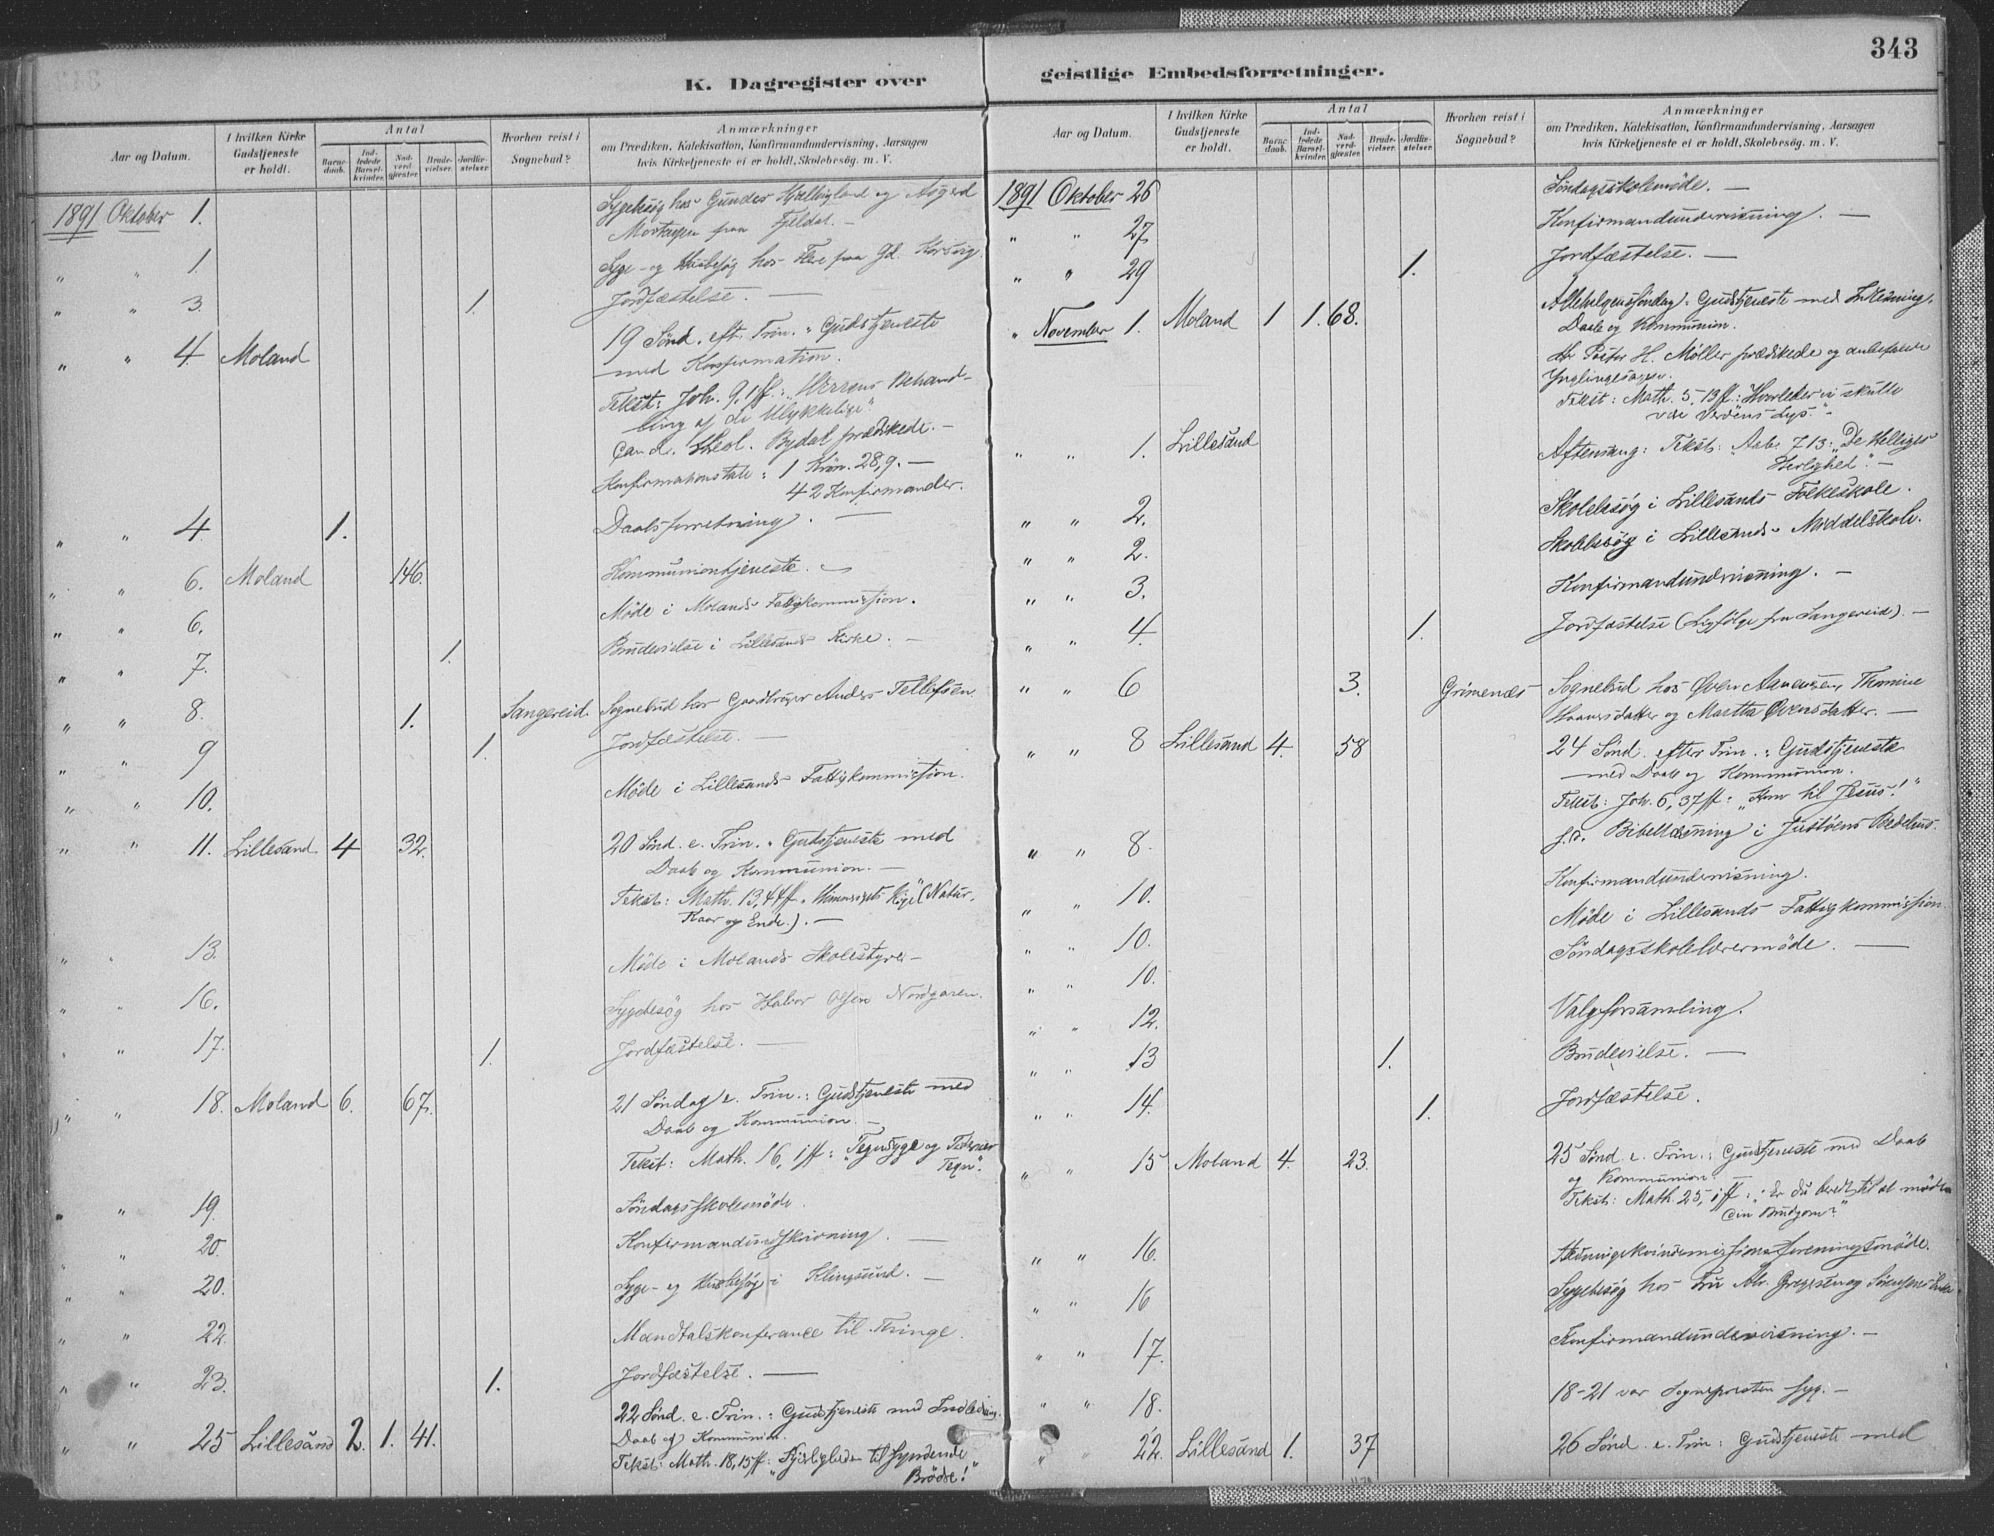 343
K. Dagregister over
Aar og Datum.
I hvilken Kirke Gudstjeneste er holdt.
Antal
Barne-daab.
Ind-ledede Barsel-kvinder.
Nad-verd-gjester.
Brude-vielser.
Jordfæ-stelser.
Hvorhen reist i Sognebud?
Anmærkninger
om Prædiken, Katekisation, Konfirmandundervisning, Aarsagen
hvis Kirketjeneste ei er holdt, Skolebesög m. V.
1891 Oktober 1. Sygebesög hos Gunder og Asgerd
paa Fjeldal. —
" " 1. Syge- og Husbesög hos Flere paa Gd. Korsvig.
" " 3. 1. Jordfæstelse. —
" " 4. Moland 19 Sönd. eft. Trin. : Gudstjeneste
med Konfirmation.
Tekst: Joh. 9,1 ff: "Herrens Behand-
ling af de Ulykkelige".
Cand. theol. Bydal prædikede. —
Konfirmationstale: 1 Krön. 28,9. —
42 Konfirmander.
" " 4. 1. Daabsforretning. —
" " 6. Moland 146. Kommuniontjeneste. —
" " 6. Möde i Molands Fattigkommission.
" " 7. 1. Brudevielse i Lillesands Kirke. —
" " 8. 1. Langereid. Sognebud hos Gaardbruger Anders Tellefsen
" " 9 1. Jordfæstelse. —
" " 10. Möde i Lillesands Fattigkommission.
" " 11. Lillesand. 4 32. 20 Sönd. e. Trin. : Gudstjeneste med
Daab og Kommunion. —
Tekst: Math. 13,44 ff. Himmeriges Rige (Natur,
Kaar og Ende). —
" " 13. Möde i Molands Skolestyre. —
" " 16. Sygebesög hos Halvor Olsen Nordgaren.
" " 17. 1. Jordfæstelse. —
" " 18. Moland 6. 67. 21 Söndag e. Trin. : Gudstjeneste med
Daab og Kommunion. —
Tekst: Math. 16, 1 ff: "Tegnsyge og Tidernes
Tegn".
" " 19. Söndagsskolemöde.
" " 20. Konfirmandundervisning. —
" " 20. Syge- og Husbesög i Klingsund. —
" " 22. Mandtalskonferance til Thinge.
" " 23. 1. Jordfæstelse. —
" " 25 Lillesand 2. 1. 41. 22 Sönd. e. Trin. : Gudstjeneste med Indledning.
Daab og Kommunion.
Tekst: Math. 18,15 ff: til syndende
Brödre!"
geistlige Embedsforretninger.
Aar og Datum.
I hvilken Kirke Gudstjeneste er holdt.
Antal
Barne-daab.
Ind-ledede Barsel-kvinder.
Nad-verd-gjester.
Brude-vielser.
Jordfæ-stelser.
Hvorhen reist i Sognebud?
Anmærkninger
om Prædiken, Katekisation, Konfirmandundervisning, Aarsagen
hvis Kirketjeneste ei er holdt, Skolebesög m. V.
1891 Oktober 26 Söndagsskolemöde. —
" " 27. Konfirmandundervisning. —
" " 29 1. Jordfæstelse. —
" November 1. Moland 1 1. 68. Allehelgensöndag: Gudstjeneste med Indledning,
Daab og Kommunion.
Hr Pastor H. Möller prædikede og anbefalede
Ynglingesagen.
Tekst: Math. 5,13 ff: "Hvorledes vi skulle
være Verdens Lys". —
" " 1. Lillesand Aftensang: Tekst: Aab. 7,13: "De Helliges
Herlighed". —
" " 2. Skolebesög i Lillesands Folkeskole.
" " 2. Skolebesög i Lillesands Middelskole.
" " 3. Konfirmandundervisning. —
" " 4. 1. Jordfæstelse (Ligfölge fra Langereid). —
" " 6 3. Grimenæs Sognebud hos Öven Aanensen, Thomine
og Martha Övensdatter. —
" " 8 Lillesand 4. 58 24 Sönd. efter Trin. : Gudstjeneste
med Daab og Kommunion.
Tekst: Joh. 6,37 ff: "Kom til Jesus!"
" " 8. S.D. Bibellæsning i Justöens Bedehus.
" " 10. Konfirmandundervisning.
" " 10. Möde i Lillesands Fattigkommission.
" " 10. Söndagsskolelærermöde. —
" " 12. Valgforsamling.
" " 13 1. Brudevielse. —
" " 14. 1. Jordfæstelse.
" " 15 Moland 4. 23. 25 Sönd. e. Trin. : Gudstjeneste med Daab
og Kommunion.
Tekst: Math. 25, 1 ff: "Er du beredt til at möde
din Brudgom?"
" " 16.
" " 16 Sygebesög hos Fru
" " 17. Konfirmandundervisning. —
" " 18. 18-21 var Sognepresten syg. —
" " 22. Lillesand 1. 37 26 Sönd. e. Trin : Gudstjeneste med